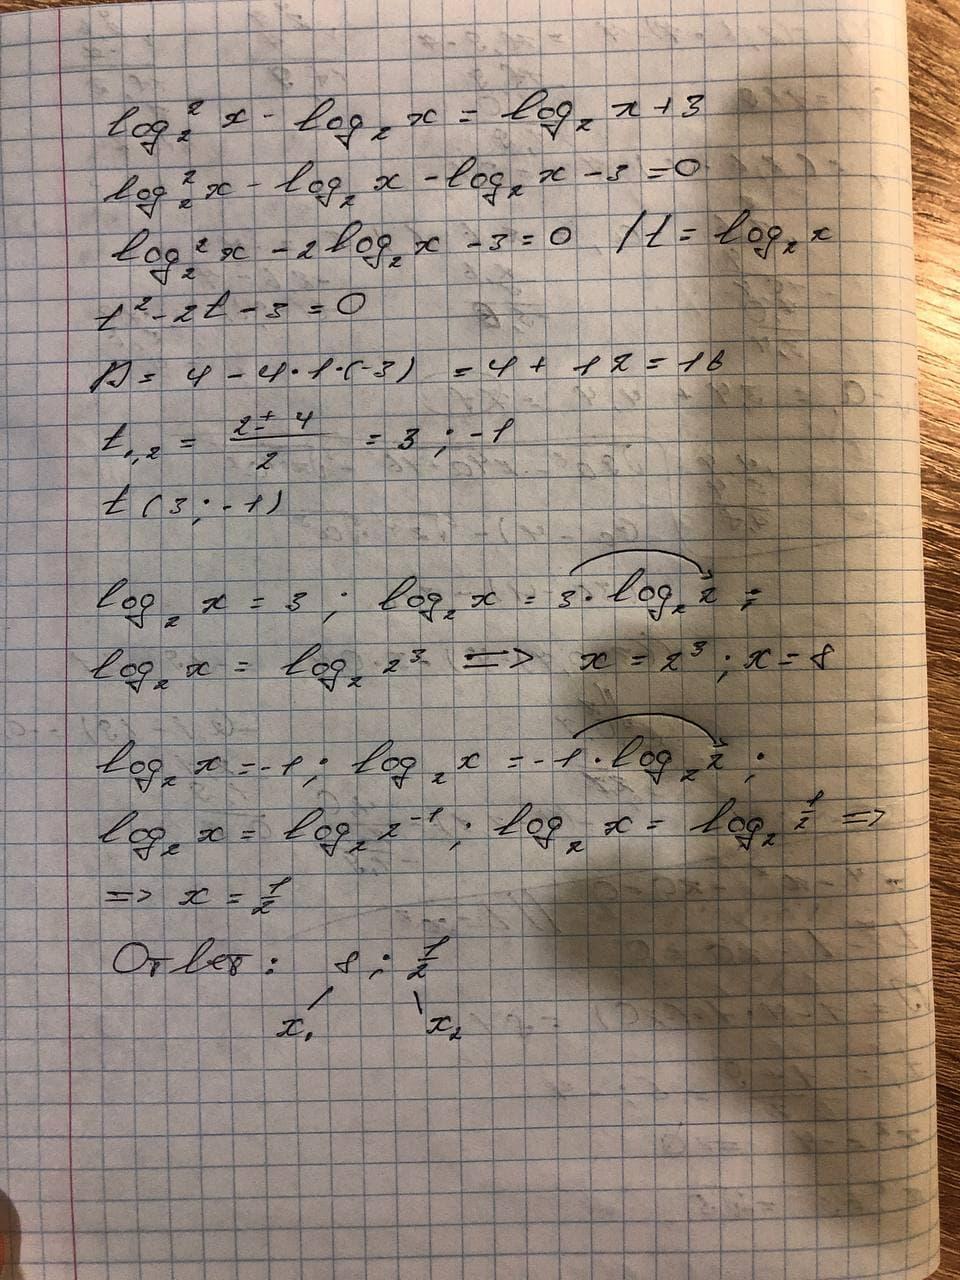 log₂² x - log₂ x = log₂ x + 3
log₂² x - log₂ x - log₂ x - 3 = 0
log₂² x - 2 log₂ x - 3 = 0 / t = log₂ x
t² - 2t - 3 = 0
D = 4 - 4·1·(-3) = 4 + 12 = 16
t₁,₂ = (2 ± 4)/2 = 3 ; -1
t (3 ; -1)
log₂ x = 3 ; log₂ x = 3 · log₂ 2 ;
log₂ x = log₂ 2³ => x = 2³ ; x = 8
log₂ x = -1 ; log₂ x = -1 · log₂ 2 ;
log₂ x = log₂ 2⁻¹ ; log₂ x = log₂ 1/2 =>
=> x = 1/2
Ответ : 8 ; 1/2
x₁ x₂